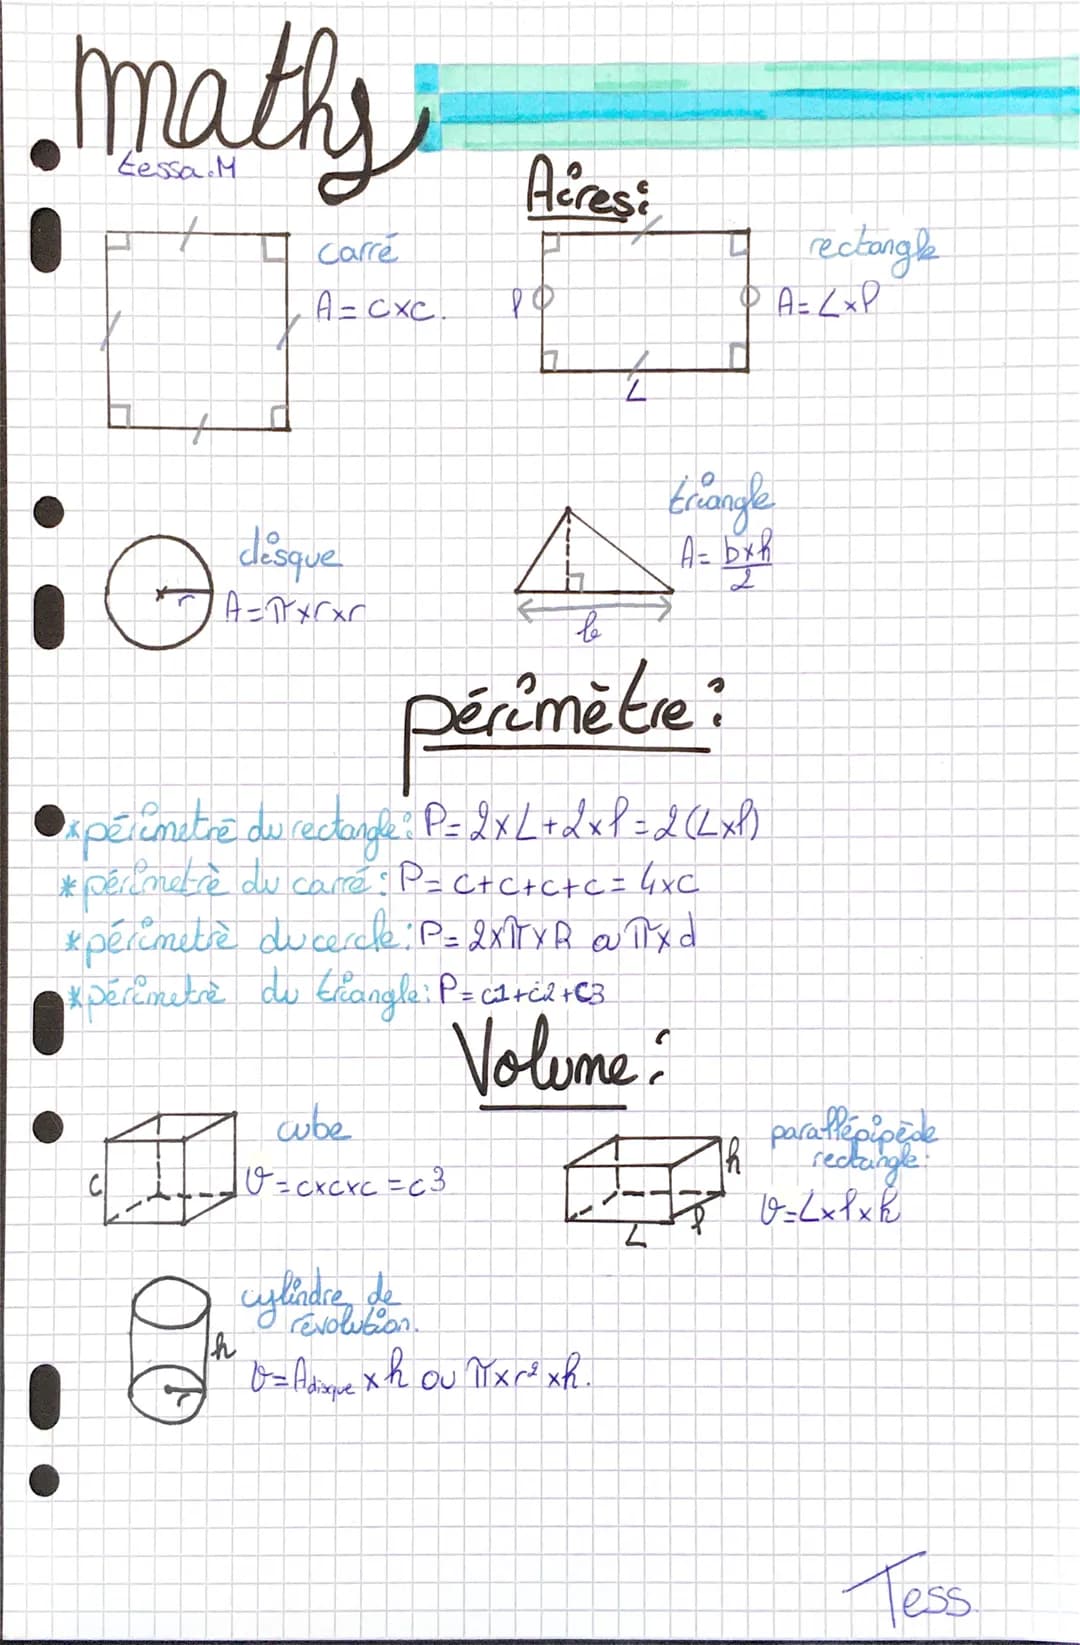 maths
tessa.M
Aires:
carré
A = c×c.
rectangle
l
A = L×l
L
disque
r
A = π×r×r
triangle
A = b×h/2
b
périmètre :
* périmetrè du rectangle : P = 2×L+2×l = 2(L×l)
* périmetrè du carré : P = c+c+c+c = 4×c
* périmetrè du cercle : P = 2×π×R ou π×d
* périmetrè du triangle : P = c1+c2+c3
Volume :
cube
c
V = c×c×c = c3
parallépipède
rectangle :
h
L
l
V = L×l×h
cylindre de
révolution.
h
r
V = Adisque × h ou π×r²×h.
Tess.